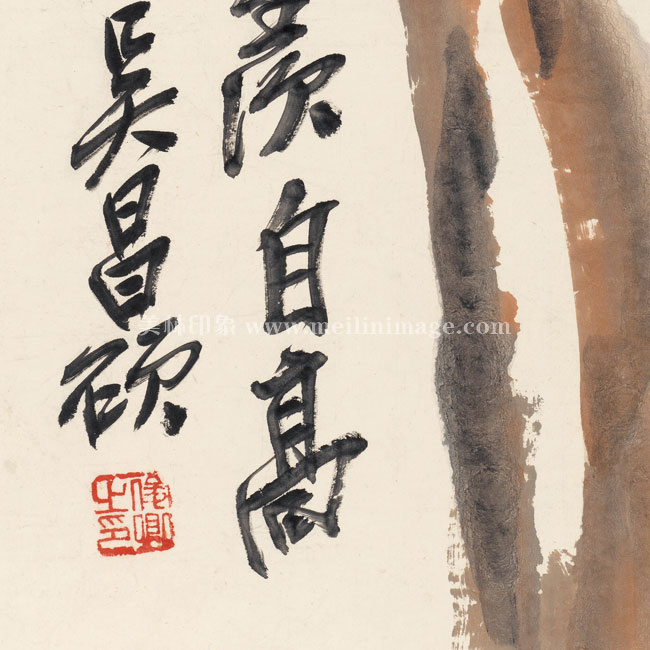 羨自高
吳昌碩
俊卿之印
美林印象 www.meilinimage.com